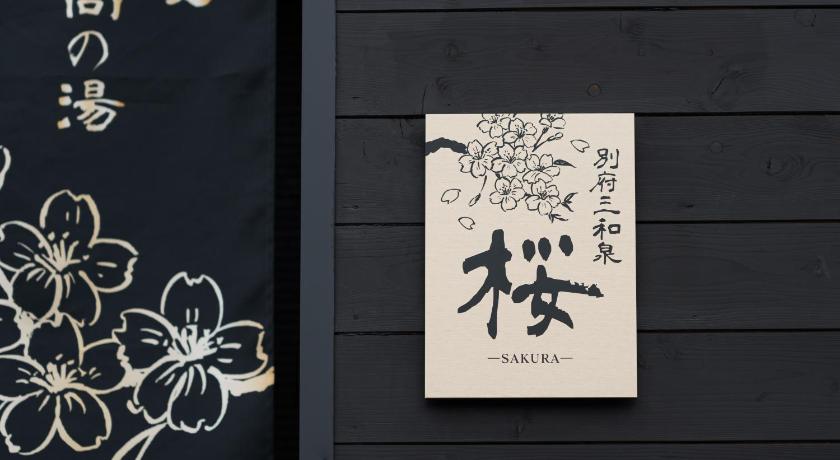 の湯
別府三和泉
桜
—SAKURA—